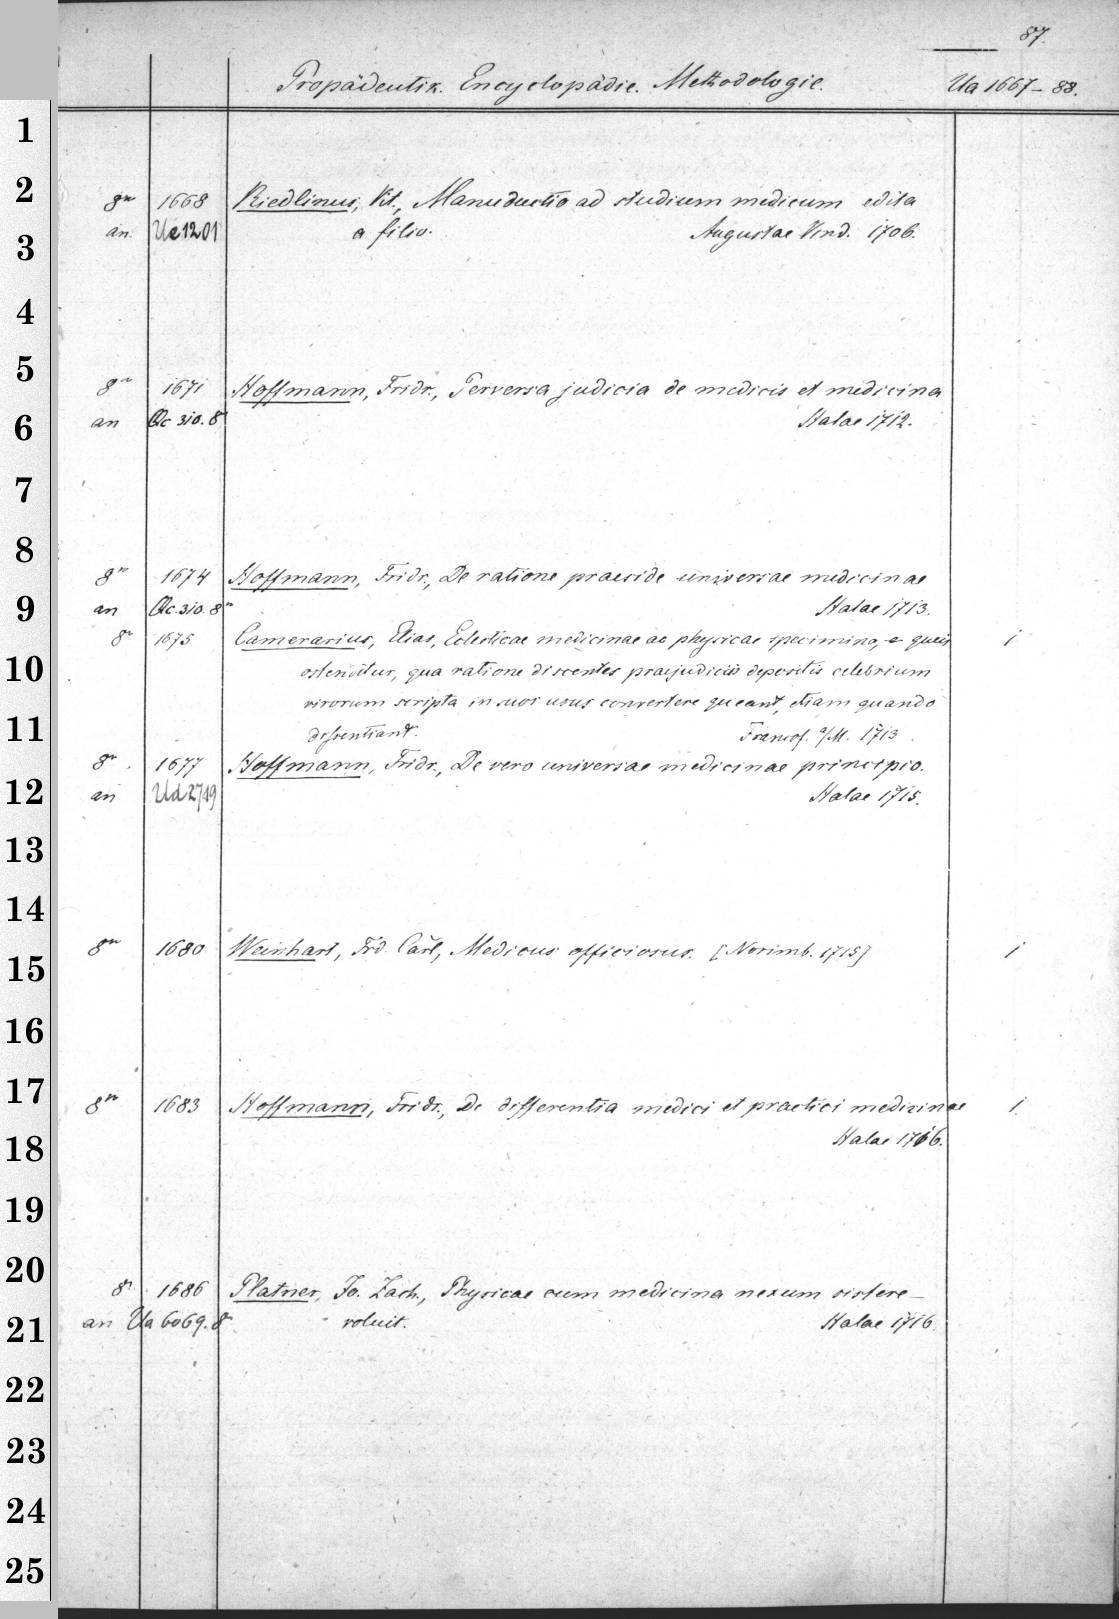 87.
Propädeutik. Encyclopädie. Methodologie. Ua 1667-88.
1
2
8° 1668 Riedlinus, Vit., Manuductio ad studium medicum edita
an. Ue 1201 a filio. Augustae Vind. 1706.
3
4
5
8° 1671 Hoffmann, Fridr., Perversa judicia de medicis et medicina
an Qc 310. 8° Halae 1712.
6
7
8
8° 1674 Hoffmann, Fridr., De ratione praeside universae medicinae
an Qc 310. 8° Halae 1713.
9
8° 1675 Camerarius, Elias, Eclecticae medicinae ac physicae specimina, e queis 1
10
ostenditur, qua ratione discentes praejudiciis depositis celebrium
virorum scripta in suos usus convertere queant, etiam quando
11
dissentiant. Francof. a/M. 1713.
8° 1677 Hoffmann, Fridr., De vero universae medicinae principio.
an Ud 2749 Halae 1715.
12
13
14
8° 1680 Weinhart, Frd. Carl, Medicus officiosus. [Norimb. 1715] 1
15
16
17
8° 1683 Hoffmann, Fridr., De differentia medici et practici medicinae 1
18
Halae 1716.
19
20
8° 1686 Platner, Jo. Zach., Physicae cum medicina nexum sistere
an Ua 6069. 8° voluit. Halae 1716.
21
22
23
24
25